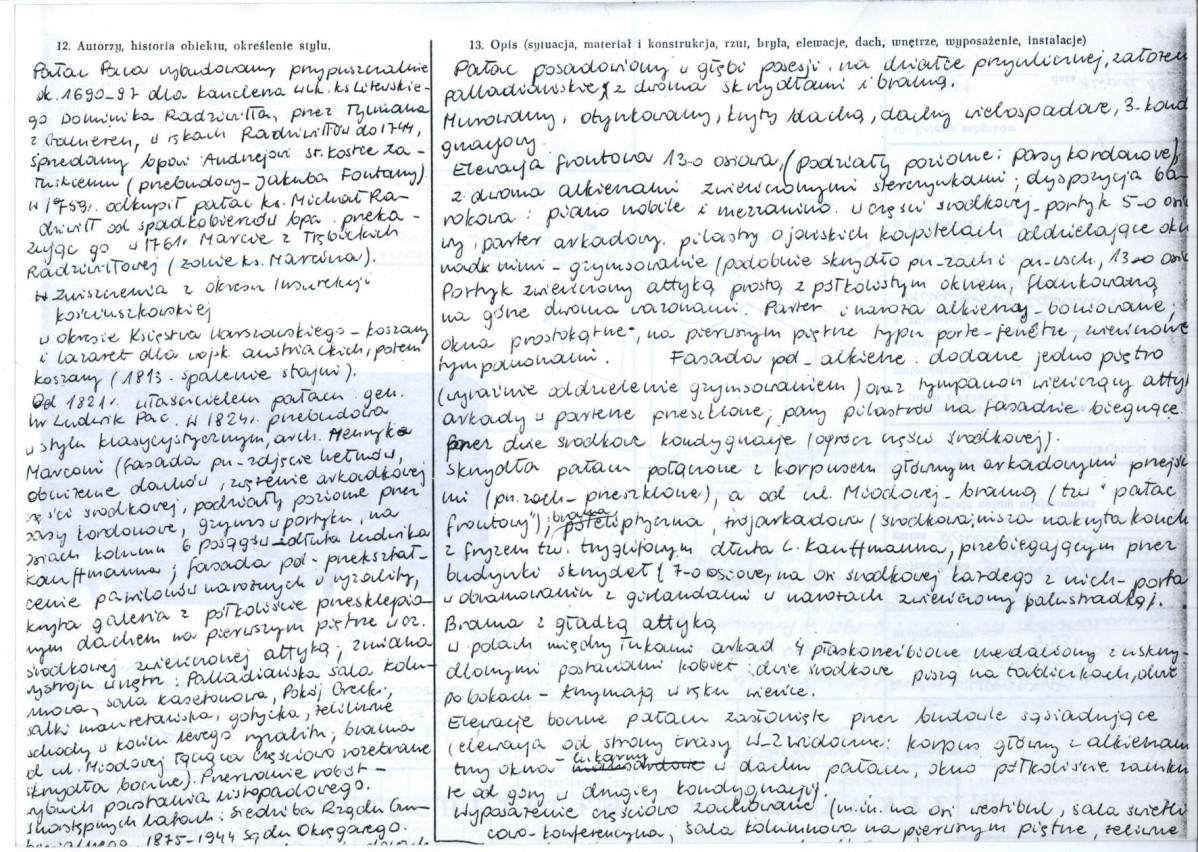 12. Autorzy, historia obiektu, określenie stylu.
Pałac Paca wybudowany przypuszczalnie
ok. 1690-97 dla kanclerza wlk. ks Litewskie-
go Dominika Radziwiłła, przez Tylmana
z Gameren, w rękach Radziwiłłów do 1744,
sprzedany bpowi Andrzejowi St. Kostce Za-
łuskiemu (przebudowy - Jakuba Fontany).
W 1759r. odkupił pałac ks. Michał Ra-
dziwiłł od spadkobierców bpa. przeka-
zując go w 1761r. Marcie z Trębickich
Radziwiłłowej (żonie ks. Marcina).
Zniszczenia z okresu Insurekcji
kościuszkowskiej
w okresie Księstwa Warszawskiego - koszary
i lazaret dla wojsk austriackich, potem
koszary (1813 - spalenie stajni).
Od 1821r. właścicielem pałacu gen.
hr Ludwik Pac. W 1824r. przebudowa
w stylu klasycystycznym, arch. Henryka
Marconi (fasada pn - zdjęcie hełmów,
obniżenie dachów, zwężenie arkadkowej
części środkowej, podziały poziome przez
pasy kordonowe, gzyms w portyku, na
osiach kolumn 6 posągów dłuta Ludwika
Kauffmanna; fasada pd - przekształ-
cenie pawilonów narożnych w ryzality,
kryta galeria z półkoliście przesklepio-
nym dachem na pierwszym piętrze w cz.
środkowej zwieńczonej attyką; zmiana
wystroju wnętrz: Palladiańska sala kolu-
mnowa, sala kasetonowa, Pokój Grecki,
salki mauretańska, gotycka, żeliwne
schody w końcu lewego ryzalitu; brama
od ul. Miodowej łącząca częściowo rozebrane
skrzydła boczne). Przerwanie robót -
wybuch powstania listopadowego.
W następnych latach: siedziba Rządu Gu-
bernialnego 1875-1944 Sądu Okręgowego.
13. Opis (sytuacja, materiał i konstrukcja, rzut, bryła, elewacje, dach, wnętrze, wyposażenie, instalacje)
Pałac posadowiony w głębi posesji, na działce przyulicznej, założen
palladiańskie, z dwoma skrzydłami i bramą.
Murowany, otynkowany, kryty blachą, dachy wielospadowe, 3-kond
gnacyjny.
Elewacja frontowa 13-o osiowa, (podziały poziome: pasy kordonowe)
z dwoma alkierzami zwieńczonymi sterczynkami; dyspozycja ba-
rokowa: piano nobile i mezzanino. W części środkowej - portyk 5-o osio
wy, parter arkadowy. pilastry o jońskich kapitelach oddzielające okn
nad nimi - gzymsowanie (podobnie skrzydło pn-zach i pn-wsch, 13-o osio
Portyk zwieńczony attyką prostą z półkolistym oknem, flankowaną
na górze dwoma wazonami. Parter i naroża alkierzy - boniowane;
okna prostokątne, na pierwszym piętrze typu porte-fenêtre, zwieńczone
tympanonami. Fasada pd - alkierze. dodane jedno piętro
(wyraźnie oddzielenie gzymsowaniem) oraz tympanon wieńczący attyk
arkady w parterze przeszklone; pary pilastrów na fasadzie biegnące
przez dwie środkowe kondygnacje (oprócz części środkowej).
Skrzydła pałacu połączone z korpusem głównym arkadowymi przejśc
mi (pn. zach - przeszklone), a od ul. Miodowej - bramą (tzw "pałac
frontowy"); brama eliptyczna, trójarkadowa (środkowa: nisza nakryta konch
z fryzem tzw. tryglifowym dłuta L. Kauffmanna, przebiegającym przez
budynki skrzydeł (7-o osiowe, na osi środkowej każdego z nich - porta
w obramowaniu z girlandami w narożach zwieńczony balustradką).
Brama z gładką attyką
w polach między łukami arkad 4 piaskorzeźbione medaliony z uskrzy-
dlonymi postaciami kobiet: dwie środkowe piszą na tabliczkach, dwie
po bokach - trzymają w ręku wieńce.
Elewacje boczne pałacu zasłonięte przez budowle sąsiadujące
(elewacja od strony trasy W-Z widoczne: korpus główny z alkierzam
trzy okna - lukarny w dachu pałacu, okno półkoliście zamkn
te od góry w drugiej kondygnacji).
Wyposażenie częściowo zachowane (m.in. na osi westibul, sala świetli
cowo-konferencyjna, sala kolumnowa na pierwszym piętrze, żeliwne